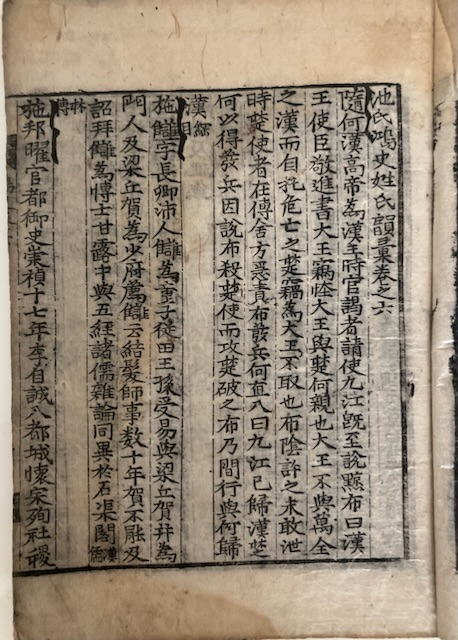 池氏鴻史姓氏韻彙卷之六
隨何漢高帝為漢王時官謁者請使九江旣至說黥布曰漢
王使臣敬進書大王竊怪大王與楚何親也大王不與萬全
之漢而自托危亡之楚竊為大王不取也布陰許之未敢泄
時楚使者在傳舍方悉責布發兵何直入曰九江已歸漢楚
何以得發兵因說布殺楚使而攻楚破之布乃間行與何歸
漢綱目
施讎字長卿沛人讎為童子從田王孫受易與梁丘賀幷為
門人及梁丘賀為少府薦讎云結髮師事数十年賀不能及
詔拜讎為博士甘露中與五經諸儒雜論同異於石渠閣漢儒
林傳
施邦曜官都御史崇禎十七年李自誠入都城懷宗殉社稷